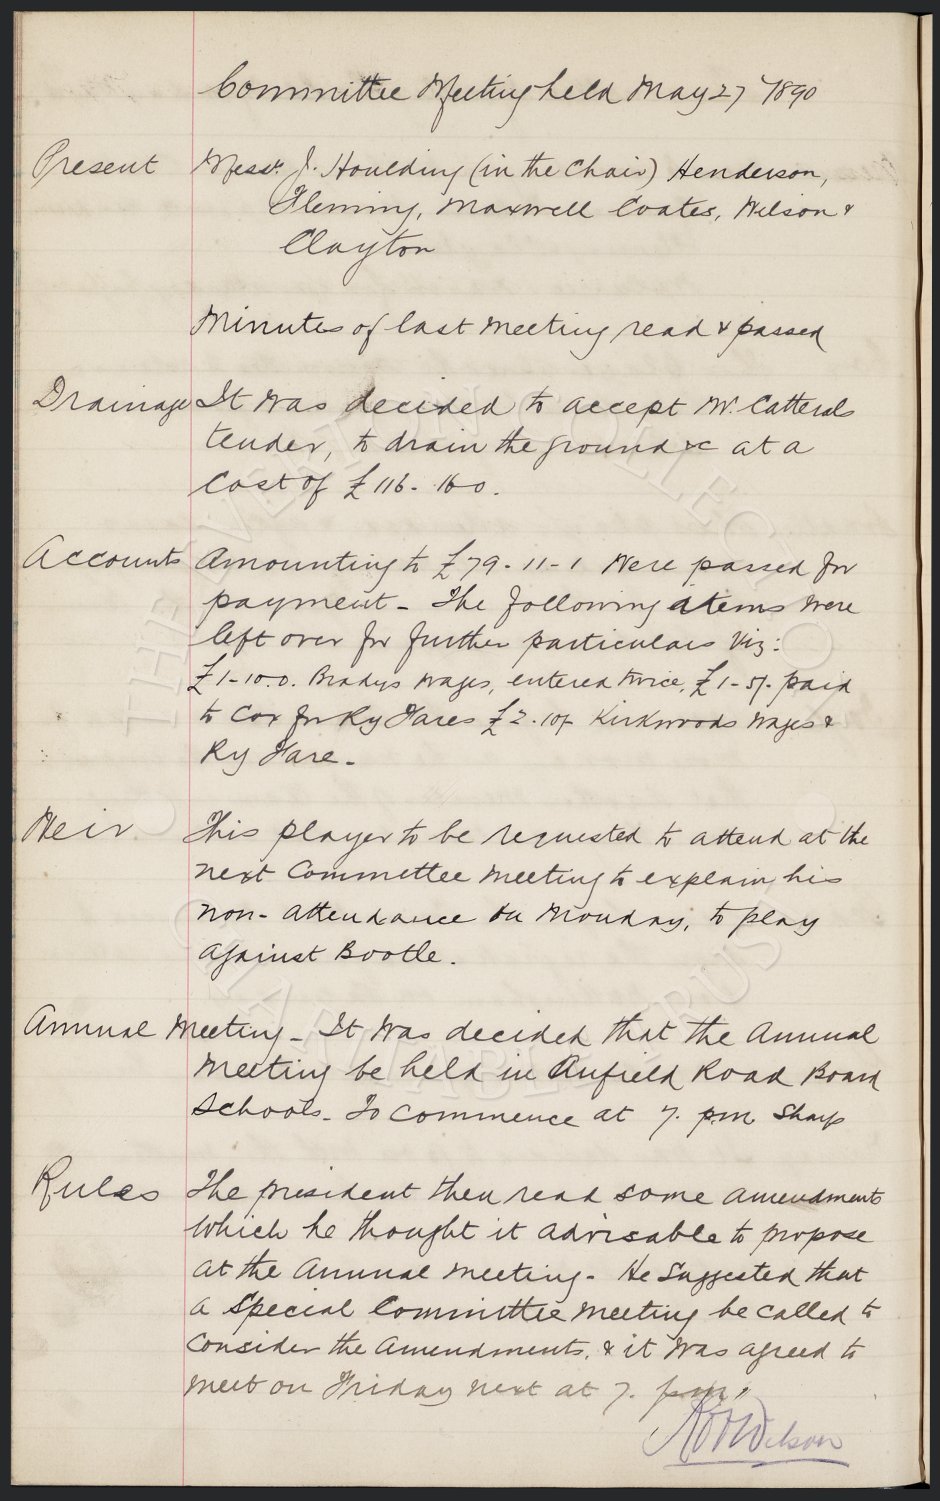 Committee Meeting held May 27 1890
Present Messrs J. Houlding (in the Chair) Henderson,
Fleming, Maxwell Coates, Wilson &
Clayton
Minutes of last meeting read & passed
Drainage It was decided to accept Mr. Catterals
tender, to drain the ground &c at a
Cost of £116-16-0.
Accounts Amounting to £79-11-1 Were passed for
payment - The following items were
left over for further particulars Viz:
£1-10.0. Bradys wages, entered twice, £1-5/- paid
to Cox for Ry Fares £2.10/- Kirkwoods wages &
Ry Fare -
Weir This player to be requested to attend at the
next Committee meeting to explain his
non-attendance on Monday, to play
against Bootle.
Annual Meeting - It was decided that the Annual
Meeting be held in Anfield Road Board
Schools - To Commence at 7. p.m. Sharp
Rules The president then read some amendments
which he thought it advisable to propose
at the Annual meeting - He Suggested that
a Special Committee meeting be called to
Consider the Amendments, & it was agreed to
meet on Friday next at 7. p.m.
Wilson
THE EVERTON COLLECTION
CHARITABLE TRUST